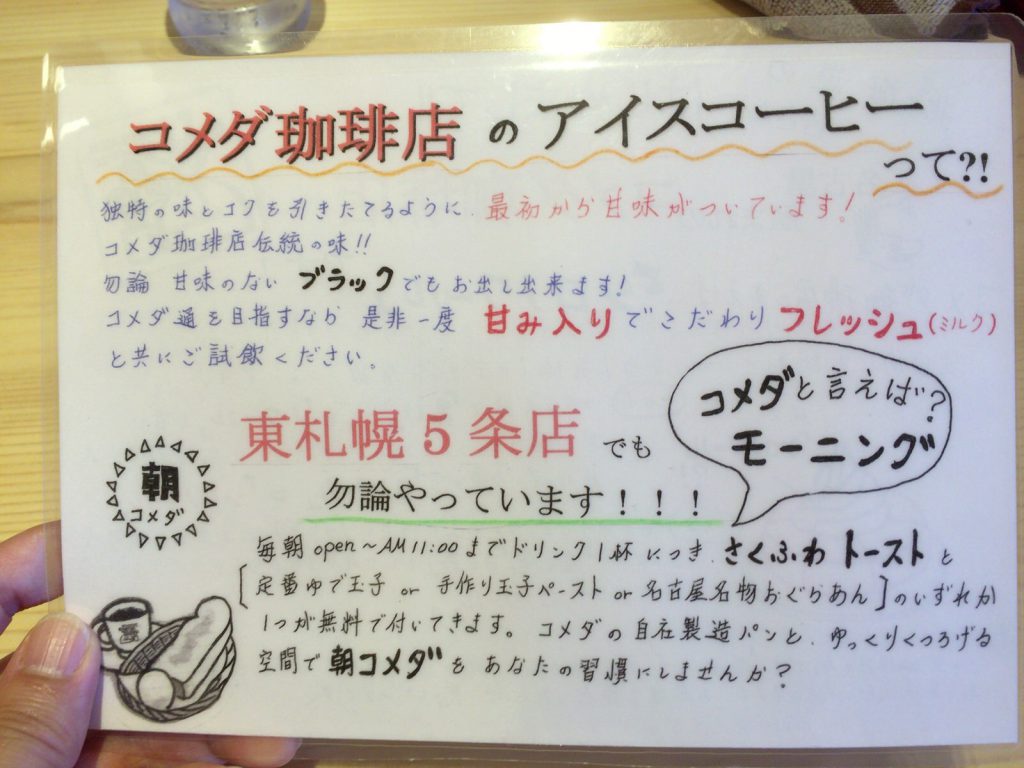 コメダ珈琲店 の アイスコーヒー
って?!
独特の味とコクを引きたてるように、最初から甘味がついています!
コメダ珈琲店伝統の味!!
勿論 甘味のない ブラックでもお出し出来ます!
コメダ通を目指すなら 是非一度 甘み入りでこだわりフレッシュ(ミルク)
と共にご試飲ください。
コメダと言えば?
モーニング
東札幌5条店 でも
勿論やっています!!!
朝
コメダ
毎朝 open~AM11:00までドリンク1杯につき、さくふわ トーストと
[定番ゆで玉子 or 手作り玉子ペースト or 名古屋名物おぐらあん]のいずれか
1つが無料で付いてきます。コメダの自社製造パンと、ゆっくりくつろげる
空間で朝コメダをあなたの習慣にしませんか?